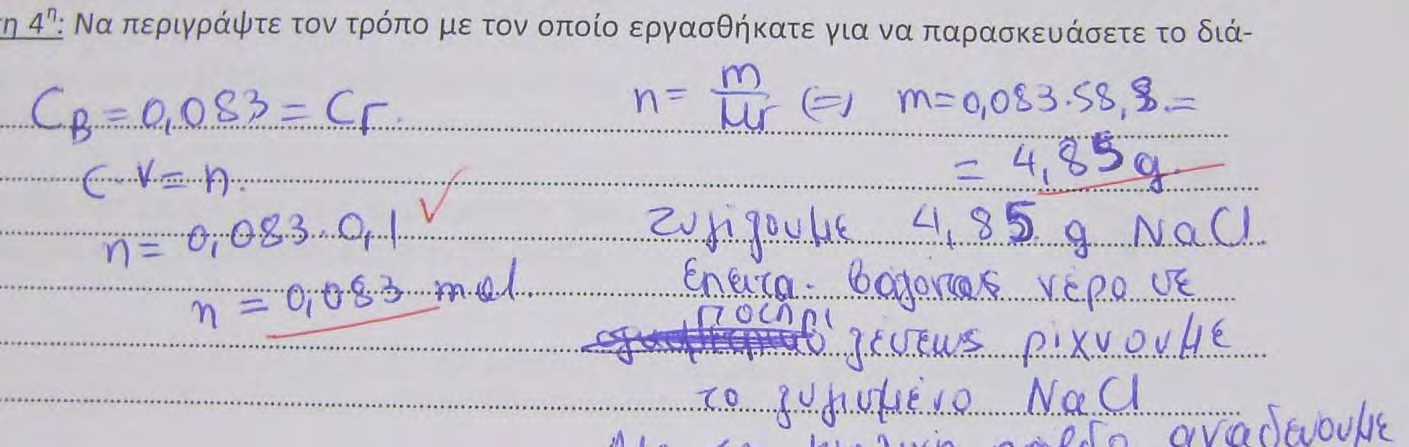 η 4η: Να περιγράψτε τον τρόπο με τον οποίο εργασθήκατε για να παρασκευάσετε το διά-
C_B = 0,083 = C_Γ.
C · V = n.
n = 0,083 · 0,1
n = 0,083 mol
n = m/Mr (=) m = 0,083 · 58,8 =
= 4,85 g
Ζυγίζουμε 4,85 g NaCl.
Επειτα βάζοντας νερο σε
ποτηρι ζεσεως ριχνουμε
το ζυγισμένο NaCl
αναδευουμε